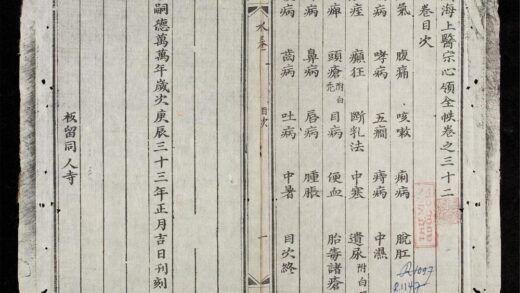 海上醫宗心領全帙卷之三十二
卷目次
氣 腹痛 咳嗽 痢病 脫肛
病 哮病 五癇 痔病 中濕
癲狂 斷乳法 中寒 遺尿 附白
頭瘡 附白禿 目病 便血 胎毒諸瘡
病 鼻病 唇病 腫脹
病 齒病 吐病 中暑 目次終
目次 一
嗣德萬萬年歲次庚辰三十三年正月吉日刊刻
板留同人寺